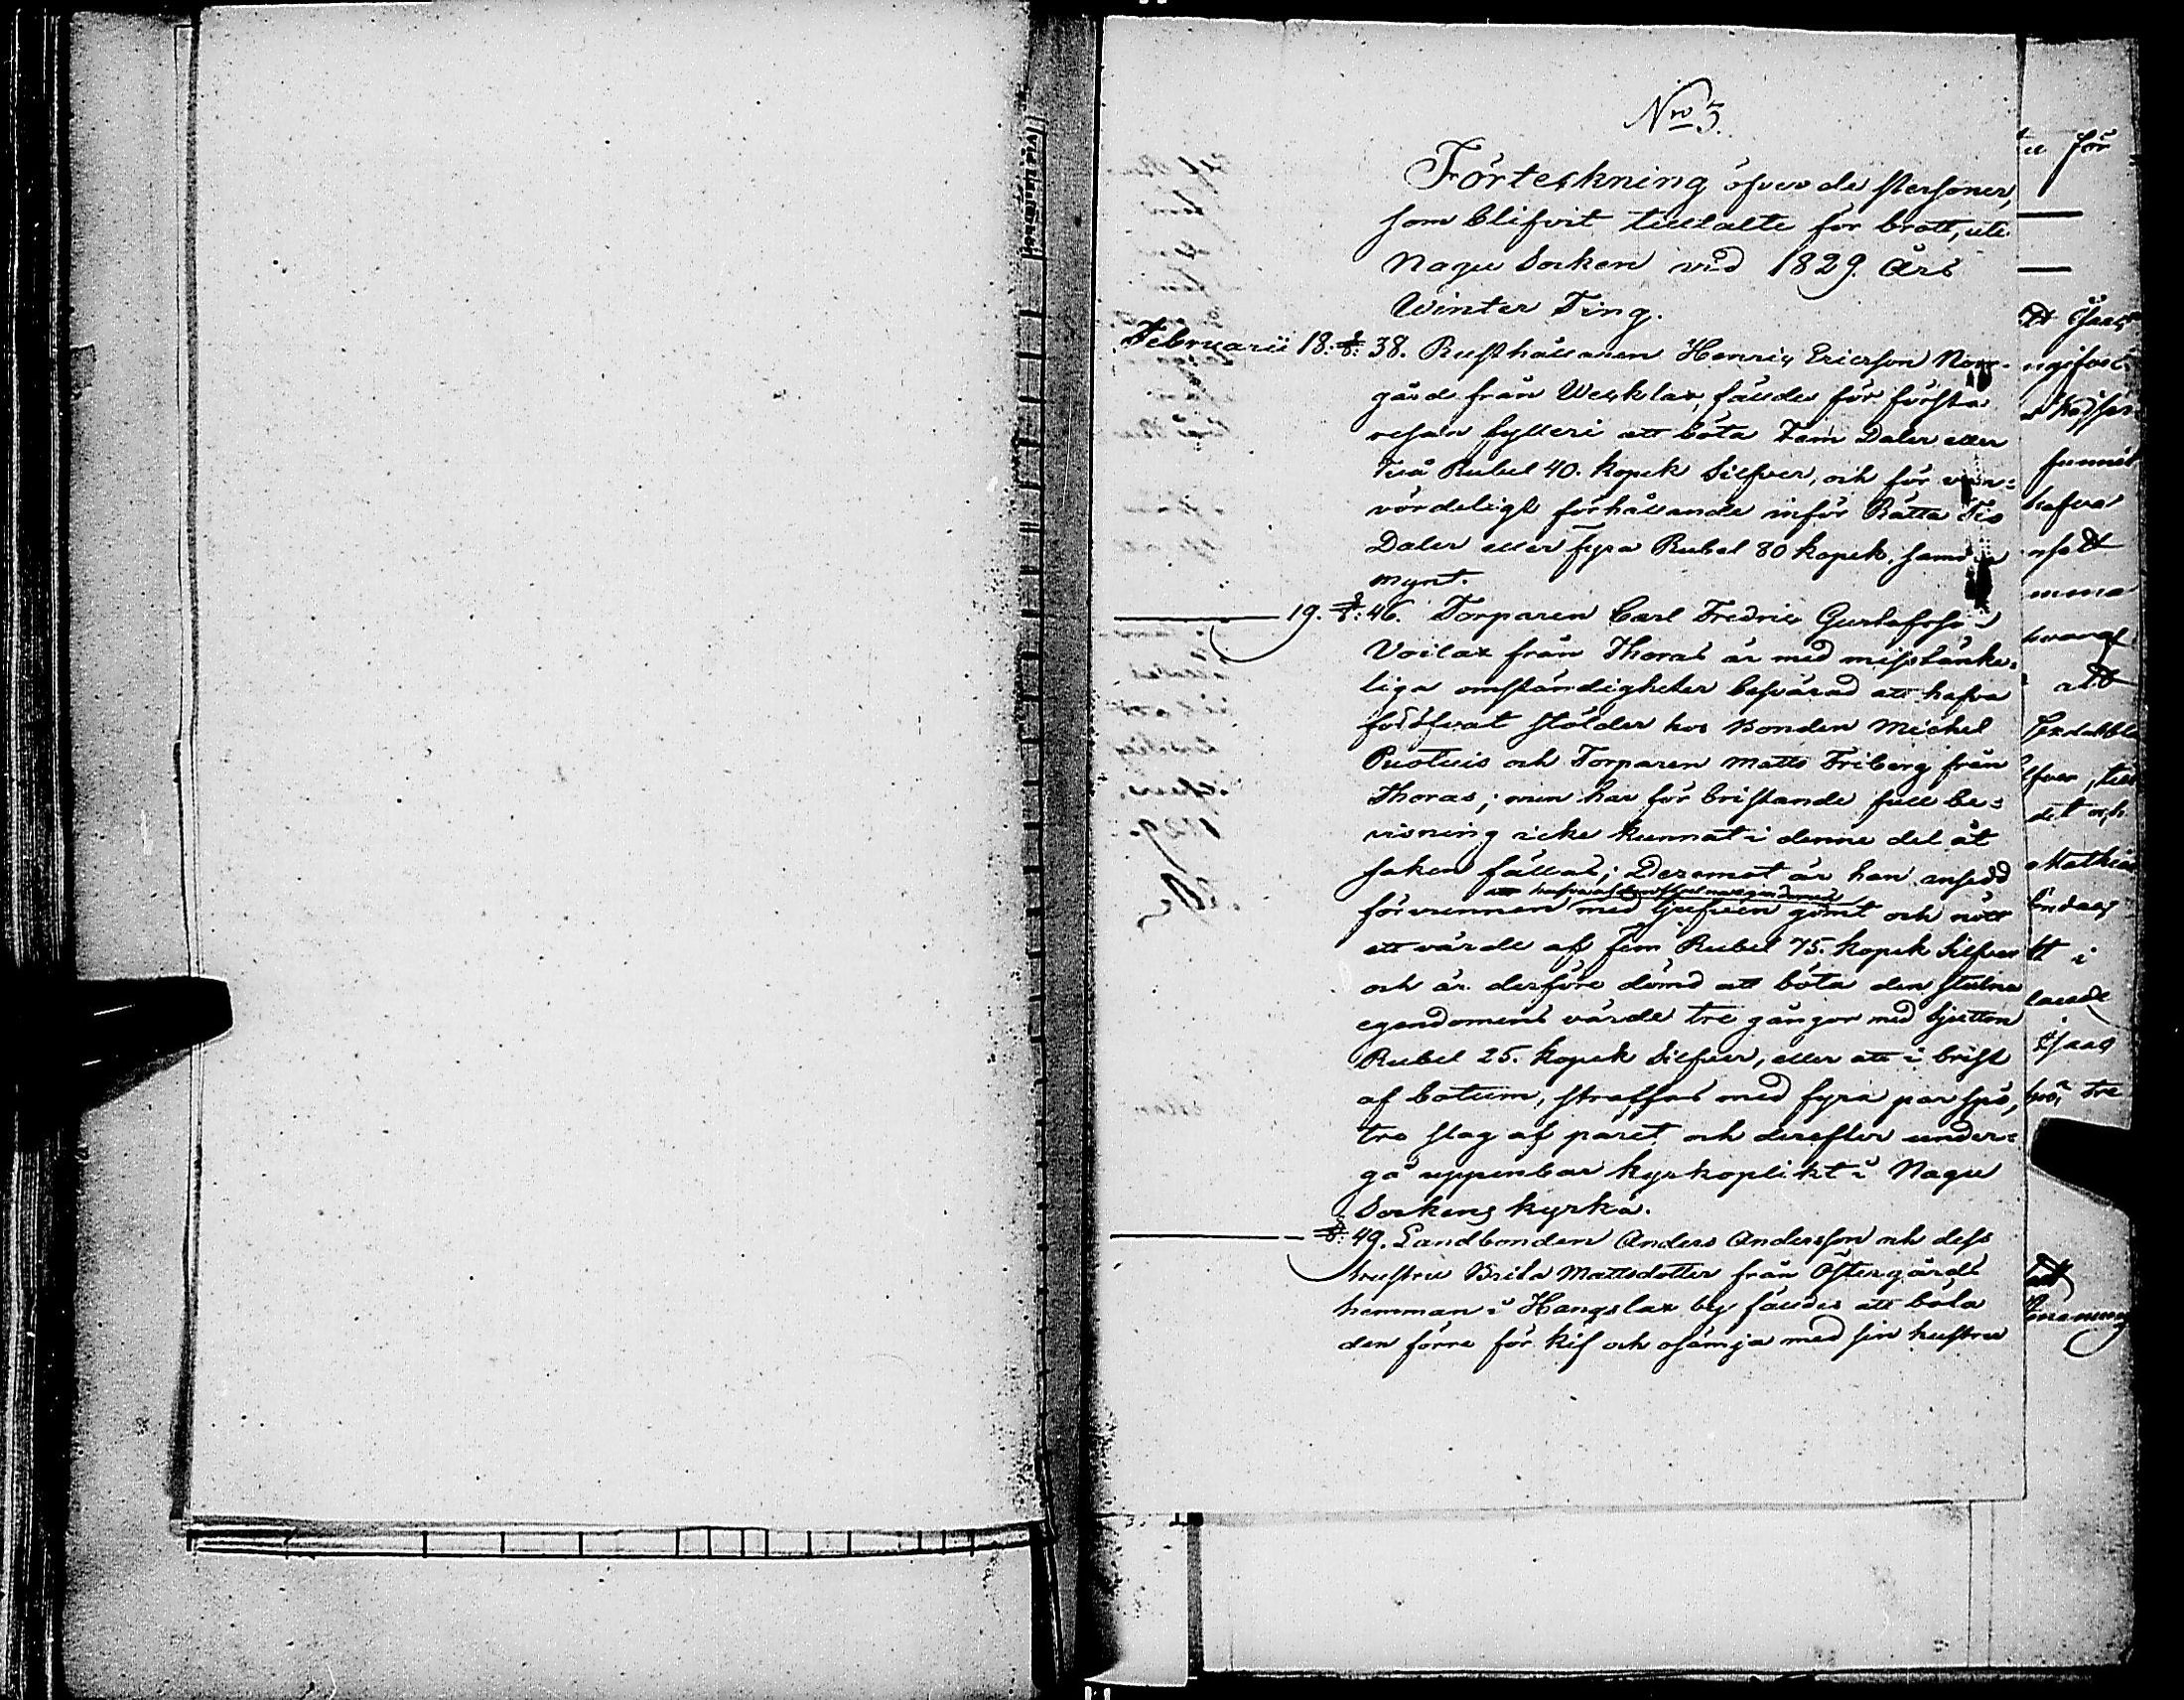 No 3.
Förteckning öfver de Personer,
som blifvit tilltalte för brott, uti
Nagu Socken vid 1829 års
Winter Ting.
Februarii 18. §: 38. Rusthållaren Henric Ericsson Norr-
gård från Wecklax, fälldes för första
resan fylleri att böta Fem Daler eller
Två Rubel 40. kopek Silfver, och för van=
vördeligt förhållande inför Rätta Tio
Daler eller fyra Rubel 80 kopek. samma
mynt.
19. §: 46. Torparen Carl Fredric Gustafsson
Voilax från Thoras är med misstänke=
liga omständigheter besvärad att hafva
föröfvat stölder hos Bonden Michel
Puotuis och Torparen Matts Friberg från
Thoras; men har för bristande full be=
visning icke kunnat i denna del åt
saken fällas; Deremot är han ansedd
att hafva af den stulna egendomen
förvunnen med tjufven gömt och nött
ett värde af fem Rubel 75. kopek Silfver
och är derföre dömd att böta den stulna
egendomens värde tre gånger med Sjutton
Rubel 25. kopek Silfver, eller att i brist
af botum, straffas med fyra par spö,
tre slag af paret och derefter under=
gå uppenbar kyrkoplikt i Nagu
Sockens kyrka.
§: 49. Landbonden Anders Andersson och dess
hustru Brita Mattsdotter från Östergårds
hemman i Hangslax by fälldes att böta
den förre för kif och osämja med sin hustru
för
funnit
hafva
att
det och
Mathias
Endast
tt i
Isaac
spö, tre